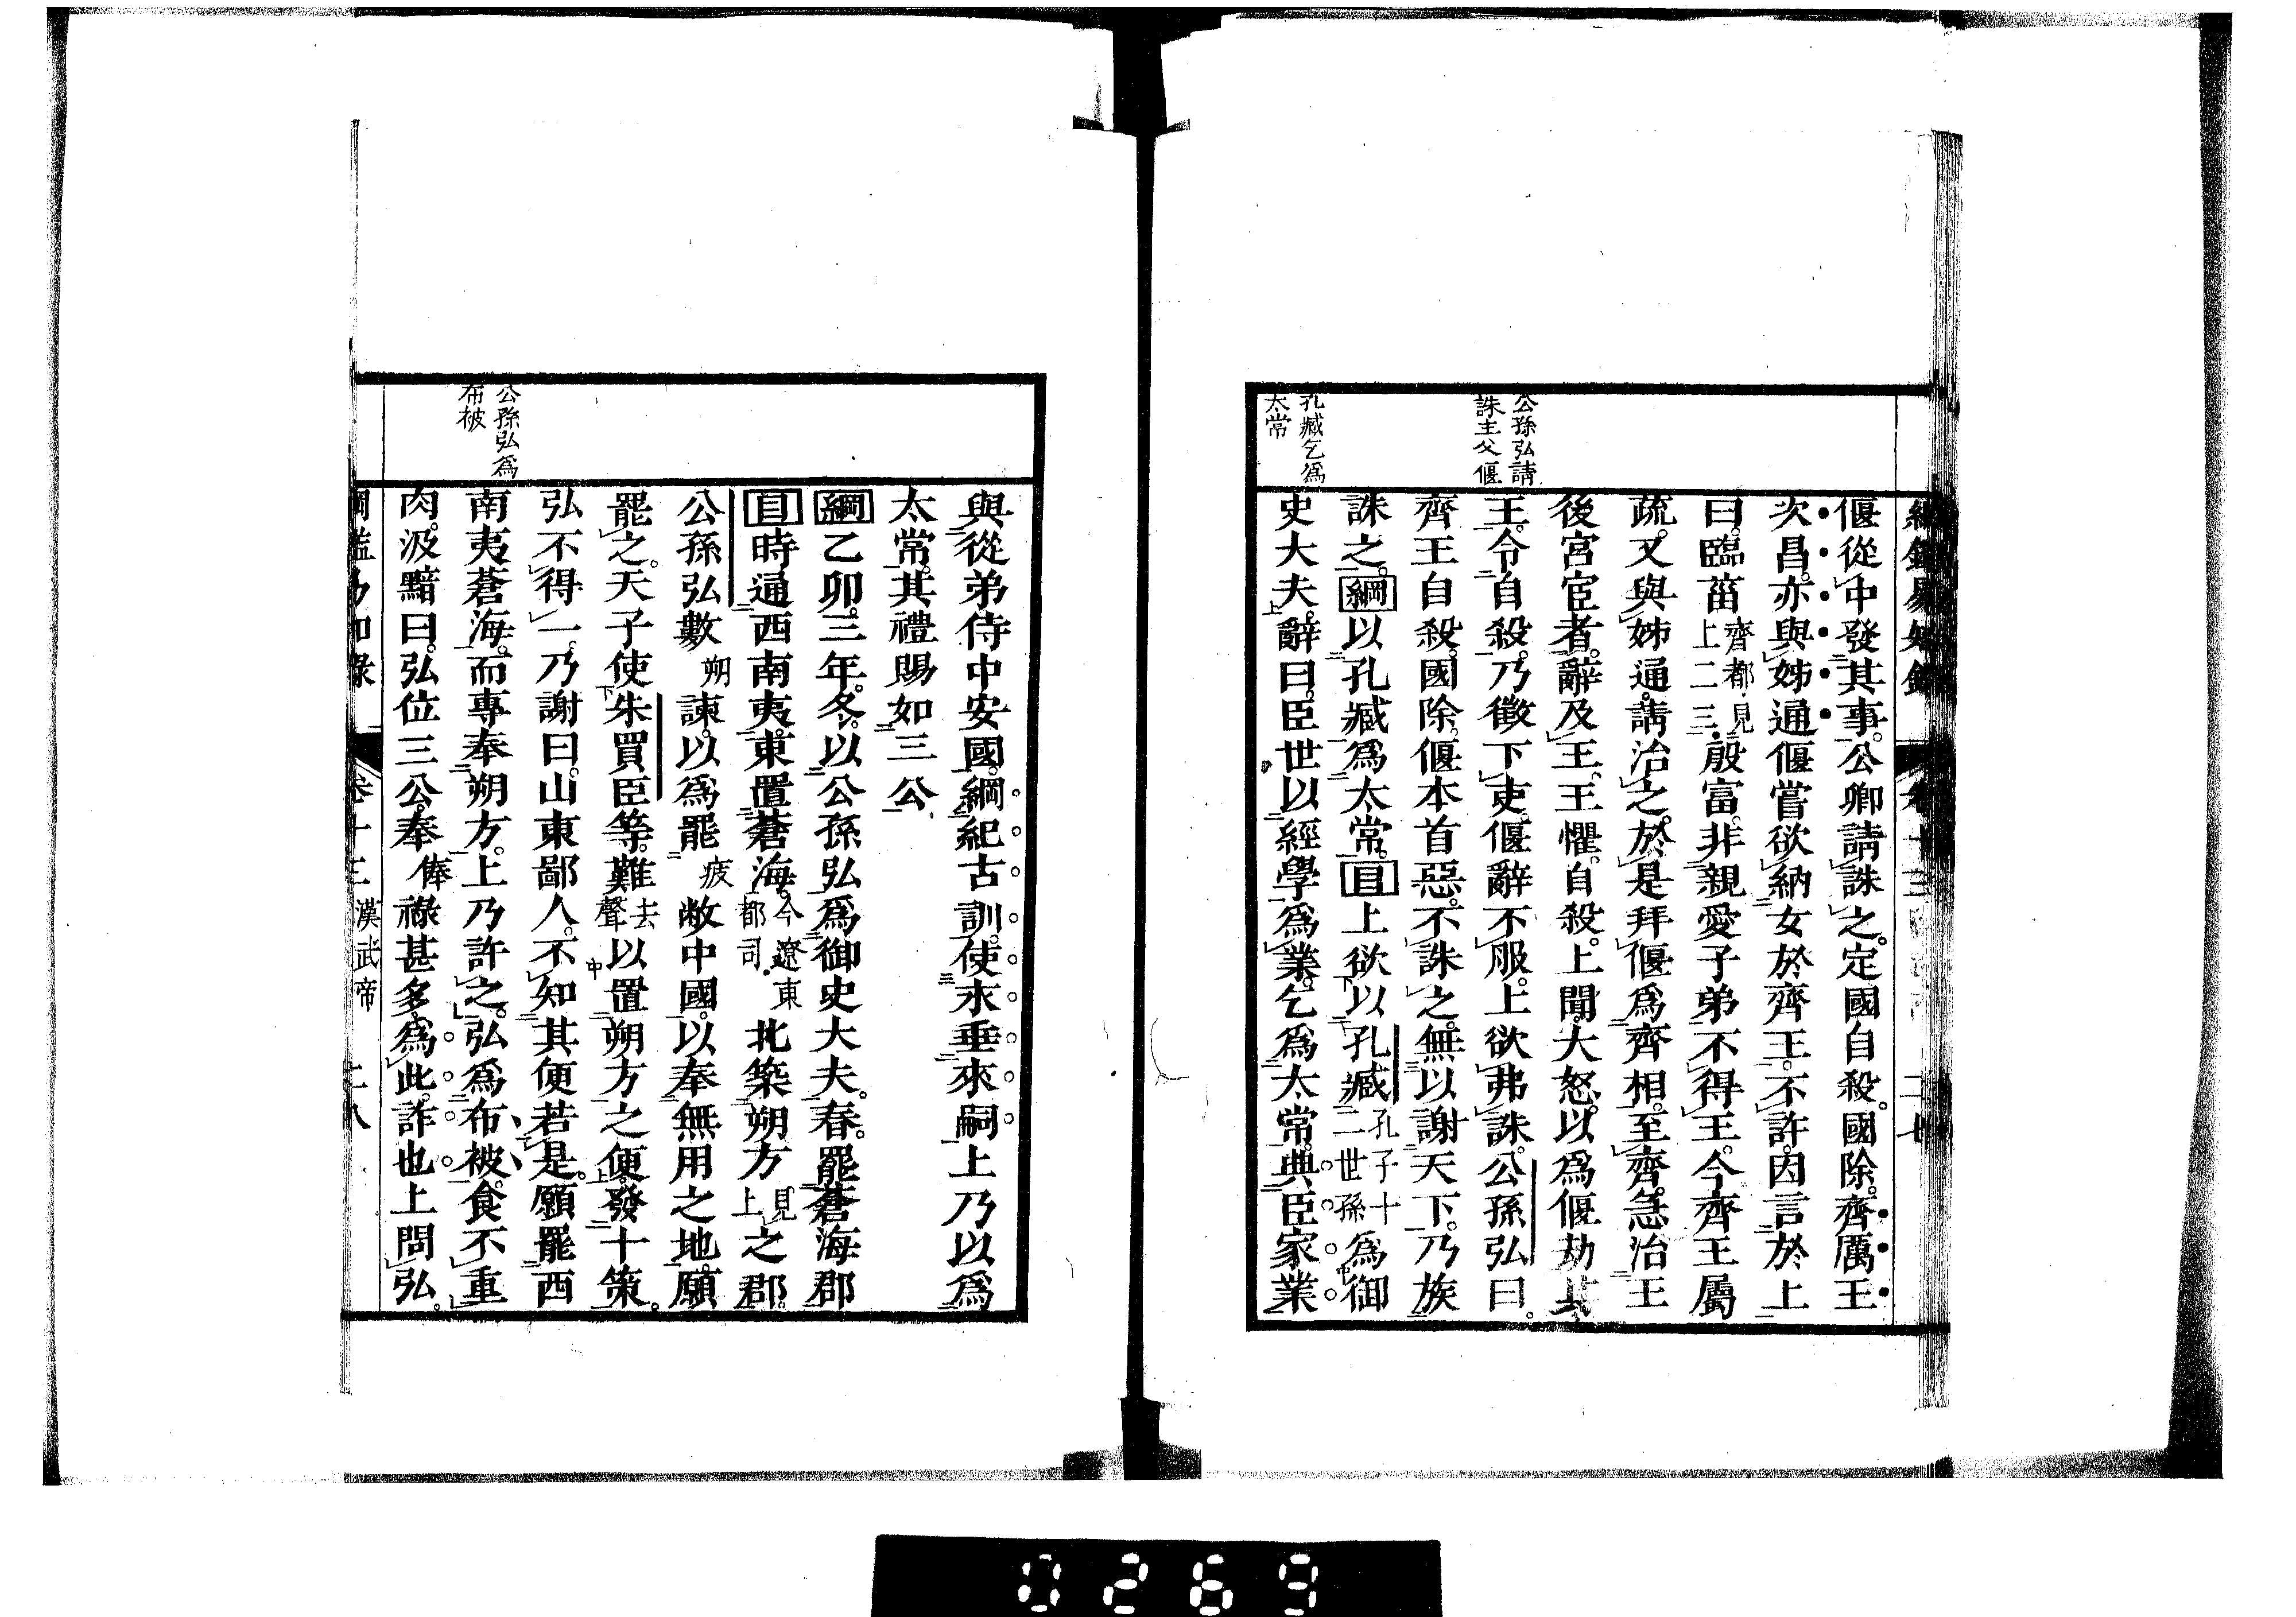 公孫弘請
誅主父偃
孔臧乞爲
太常
偃從中發其事。公卿請誅之。定國自殺。國除。齊厲王
次昌。亦與姊通偃嘗欲納女於齊王。不許。因言於上
曰。臨菑齊都見上二三殷富。非親愛子弟不得王。今齊王屬
疏。又與姊通。請治之。於是拜偃爲齊相。至齊。急治王
後宮宦者。辭及王。王懼。自殺。上聞。大怒。以爲偃劫其
王。令自殺。乃徵下吏。偃辭不服。上欲弗誅。公孫弘曰。
齊王自殺。國除。偃本首惡。不誅之。無以謝天下。乃族
誅之。綱以孔臧爲太常。目上欲以孔臧孔子十二世孫爲御
史大夫。辭曰。臣世以經學爲業。乞爲太常。典臣家業
公孫弘爲
布被
與從弟侍中安國。綱紀古訓。使永垂來嗣上乃以爲
太常。其禮賜如三公
綱乙卯。三年。冬。以公孫弘爲御史大夫。春。罷蒼海郡
目時通西南夷。東置蒼海。今遼東都司北築朔方見上之郡。
公孫弘數朔諫。以爲罷疲敝中國。以奉無用之地。願
罷之。天子使朱買臣等。難去聲以置朔方之便。發十策。
弘不得一。乃謝曰。山東鄙人。不知其便若是。願罷西
南夷蒼海。而專奉朔方。上乃許之。弘爲布被。食不重
肉。汲黯曰。弘位三公。奉俸祿甚多。爲此。詐也上問弘。
卷十三 漢武帝 二八
0269